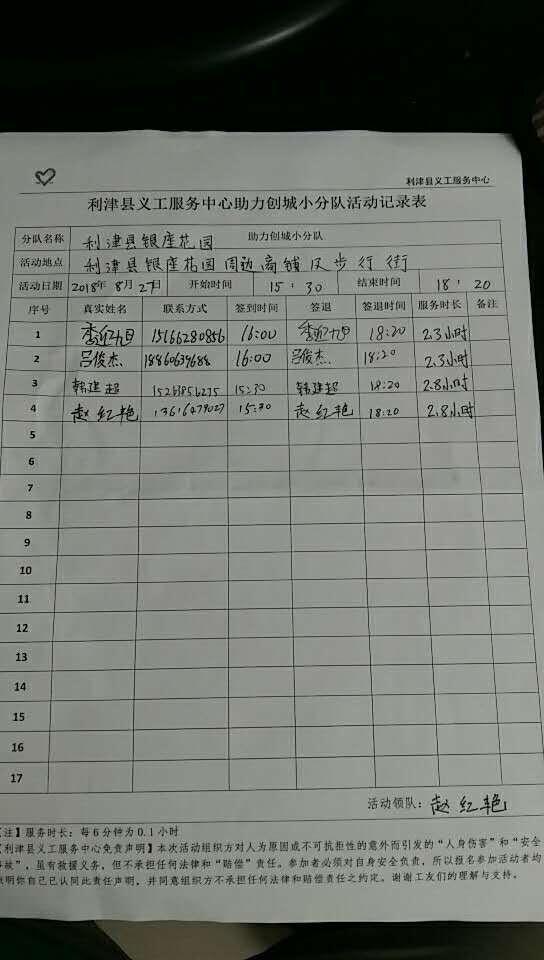 利津县义工服务中心
利津县义工服务中心助力创城小分队活动记录表
分队名称 利津县银座花园 助力创城小分队
活动地点 利津县银座花园周边商铺及步行街
活动日期 2018年8月27日 开始时间 15:30 结束时间 18:20
序号 真实姓名 联系方式 签到时间 签退 签退时间 服务时长 备注
1 15166280856 16:00 18:20 2.3小时
2 吕俊杰 18860639688 16:00 吕俊杰 18:20 2.3小时
3 韩建超 15263856275 15:30 韩建超 18:20 2.8小时
4 赵红艳 13616479027 15:30 赵红艳 18:20 2.8小时
5
6
7
8
9
10
11
12
13
14
15
16
17
活动领队: 赵红艳
【注】服务时长:每6分钟为0.1小时
【利津县义工服务中心免责声明】本次活动组织方对人为原因或不可抗拒性的意外而引发的"人身伤害"和"安全
事故",虽有救援义务,但不承担任何法律和"赔偿"责任。参加者必须对自身安全负责,所以报名参加活动者均
表明你自己已认同此责任声明,并同意组织方不承担任何法律和赔偿责任之约定。谢谢工友们的理解与支持。